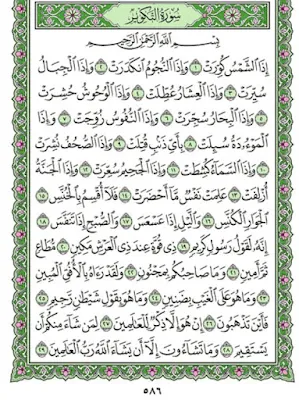 سُورَةُ التَّكْوِيرِ
بِسْمِ اللَّهِ الرَّحْمَٰنِ الرَّحِيمِ
إِذَا الشَّمْسُ كُوِّرَتْ ١ وَإِذَا النُّجُومُ انكَدَرَتْ ٢ وَإِذَا الْجِبَالُ
سُيِّرَتْ ٣ وَإِذَا الْعِشَارُ عُطِّلَتْ ٤ وَإِذَا الْوُحُوشُ حُشِرَتْ
٥ وَإِذَا الْبِحَارُ سُجِّرَتْ ٦ وَإِذَا النُّفُوسُ زُوِّجَتْ ٧ وَإِذَا
الْمَوْءُدَةُ سُئِلَتْ ٨ بِأَيِّ ذَنبٍ قُتِلَتْ ٩ وَإِذَا الصُّحُفُ نُشِرَتْ
١٠ وَإِذَا السَّمَاءُ كُشِطَتْ ١١ وَإِذَا الْجَحِيمُ سُعِّرَتْ ١٢ وَإِذَا الْجَنَّةُ
أُزْلِفَتْ ١٣ عَلِمَتْ نَفْسٌ مَّا أَحْضَرَتْ ١٤ فَلَا أُقْسِمُ بِالْخُنَّسِ ١٥
الْجَوَارِ الْكُنَّسِ ١٦ وَاللَّيْلِ إِذَا عَسْعَسَ ١٧ وَالصُّبْحِ إِذَا تَنَفَّسَ ١٨
إِنَّهُ لَقَوْلُ رَسُولٍ كَرِيمٍ ١٩ ذِي قُوَّةٍ عِندَ ذِي الْعَرْشِ مَكِينٍ ٢٠ مُّطَاعٍ
ثَمَّ أَمِينٍ ٢١ وَمَا صَاحِبُكُم بِمَجْنُونٍ ٢٢ وَلَقَدْ رَآهُ بِالْأُفُقِ الْمُبِينِ
٢٣ وَمَا هُوَ عَلَى الْغَيْبِ بِضَنِينٍ ٢٤ وَمَا هُوَ بِقَوْلِ شَيْطَانٍ رَّجِيمٍ ٢٥
فَأَيْنَ تَذْهَبُونَ ٢٦ إِنْ هُوَ إِلَّا ذِكْرٌ لِّلْعَالَمِينَ ٢٧ لِمَن شَاءَ مِنكُمْ أَن
يَسْتَقِيمَ ٢٨ وَمَا تَشَاءُونَ إِلَّا أَن يَشَاءَ اللَّهُ رَبُّ الْعَالَمِينَ ٢٩
٥٨٦